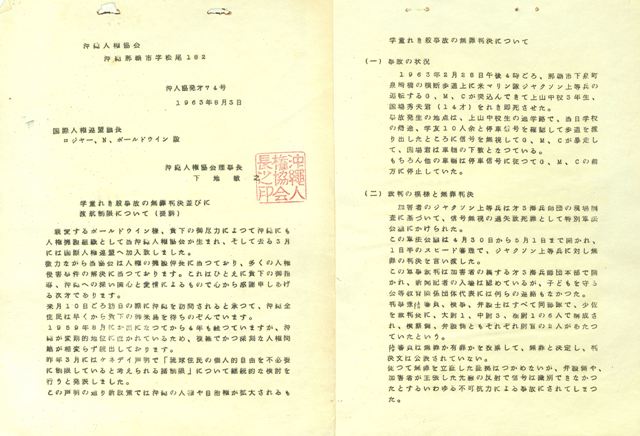 沖縄人権協会
沖縄那覇市字松尾182
沖人協発才74号
1963年8月3日
国際人権連盟議長
ロジャー、N、ボールドウイン殿
沖縄人権協会理事長
下地敏之
沖縄人権協会理事長之印
学童れき殺事故の無罪判決並びに
渡航制限について(提訴)
敬愛するボールドウイン様、貴下の御尽力によつて沖縄にも
人権擁護組織として当沖縄人権協会が生まれ、そして去る3月
には国際人権連盟へ加入致しました。
微力ながら当協会は人権の擁護伸長に当つており、多くの人権
侵害事件の解決に当つております。これはひとえに貴下の御指
導、沖縄への深い関心と愛情によるもので心から感謝申しあげ
る次才であります。
来月10日ごろ訪日の際に沖縄を訪問されると承つて、沖縄全
住民は早くから貴下の御来島を待ちのぞんでいます。
1959年8月にお出になつてから4年も経つていますが、沖
縄が変則的地位に置かれているため、複雑でかつ深刻な人権問
題が相変らず続出しております。
昨年3月にはケネデイ声明で「琉球住民の個人的自由を不必要
に制限していると考えられる諸制限」について継続的な検討を
行うと発表しました。
この声明の通り新政策では沖縄の人権や自治権が拡大されるも
学童れき殺事故の無罪判決について
(一) 事故の状況
1963年2月28日午後4時ごろ、那覇市下泉町
泉崎橋の横断歩道上に米マリン隊ジヤクソン上等兵の
運転するG、M、Cが突込んできて上山中校3年生、
国場秀夫君(14才)をれき即死させた。
事故発生の地点は、上山中校生の通学路で、当日学校
の帰途、学友10人余と停車信号を確認して歩道を渡
り出したところに信号を無視して、G、M、Cが暴走し
て、国場君は車輪の下敷となつている。
もちろん他の車輛は停車信号に従つてG、M、Cの前
方に停止していた。
(二) 裁判の模様と無罪判決
加害者のジヤクソン上等兵は才3海兵師団の現場調
査に基づいて、信号無視の過失致死罪として特別軍法
会議にかけられた。
この軍法会議は4月30日から5月1日まで開かれ、
1日半のスピード審理で、ジヤクソン上等兵に対し無
罪の判決を言い渡した。
この軍事裁判は加害者の属する才3海兵師団本部で開
かれ、新聞記者の入場は認めているが、子どもを守る
公等教育関係団体代表には何らの連絡もなかつた。
判事兼陪審員、検事、弁護士はすべて同師団隊で、少佐
を裁判長に、大尉1、中尉3、准尉1の6人で構成さ
れ、検察側、弁護側ともそれぞれ尉官の2人があたつ
ていたという。
陪審員は無罪か有罪かを投票して、無罪と決定し、判
決文は公表されていない。
従つて無罪を立証した証拠はつかめないが、弁護側や、
加害者が主張した先般の反射で信号は識別できなかつ
たとするいわゆる不可抗力による事故にされてしまつ
た。